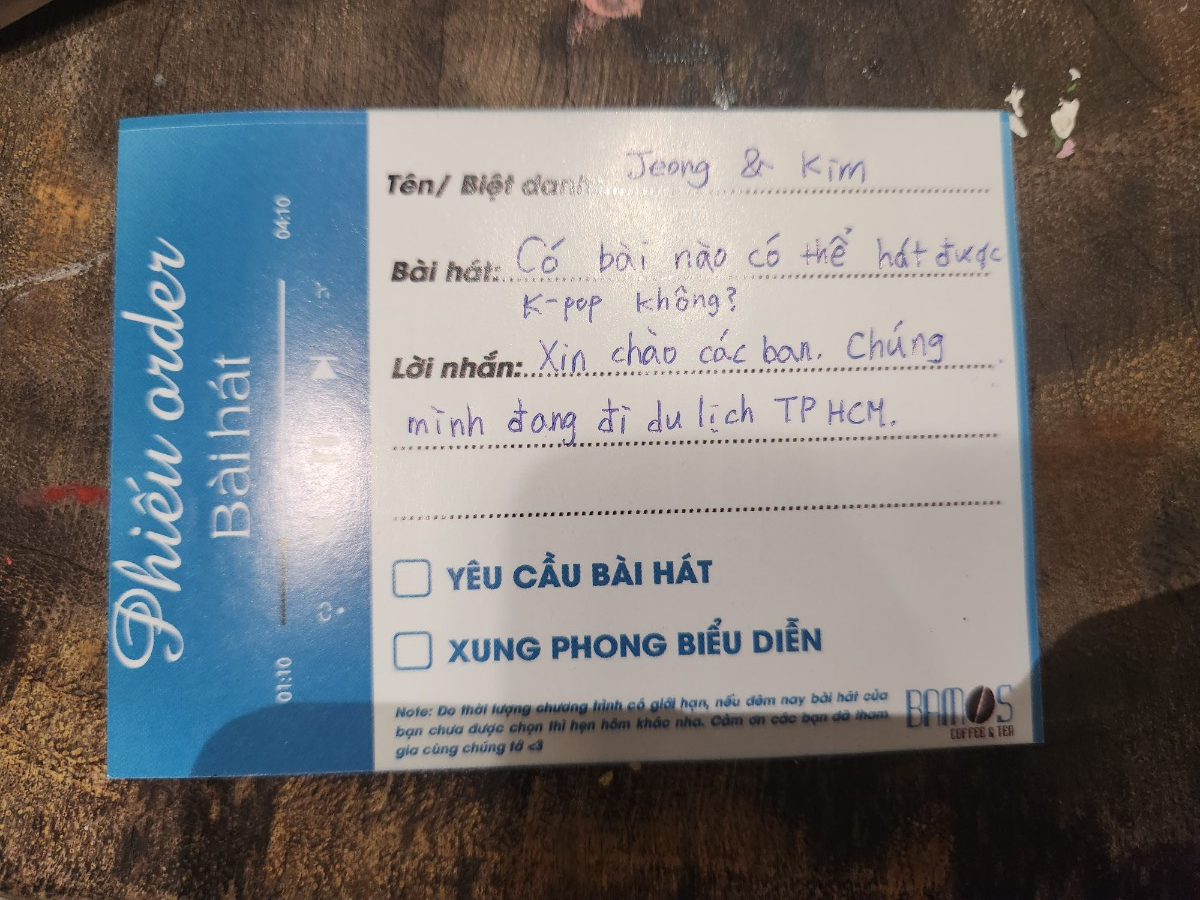 Phiếu order
Bài hát
01:10
04:10
Tên/ Biệt danh: Jeong & Kim
Bài hát: Có bài nào có thể hát được
K-pop không?
Lời nhắn: Xin chào các ban. Chúng
mình đang đi du lịch TP HCM.
YÊU CẦU BÀI HÁT
XUNG PHONG BIỂU DIỄN
Note: Do thời lượng chương trình có giới hạn, nếu đêm nay bài hát của
bạn chưa được chọn thì hẹn hôm khác nha. Cảm ơn các bạn đã tham
gia cùng chúng tớ <3
BAMOS
COFFEE & TEA